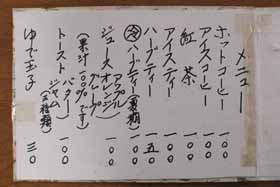 メニュー
ホットコーヒー 一〇〇
アイスコーヒー 一〇〇
紅茶 一〇〇
アイスティー 一〇〇
ハーブティー 一五〇
冷ハーブティー（夏期） 一〇〇
ジュース オレンジ アップル グレープ 一〇〇
（果汁100%です）
トースト バター ジャム（三種類） 一〇〇
ゆで玉子 三〇